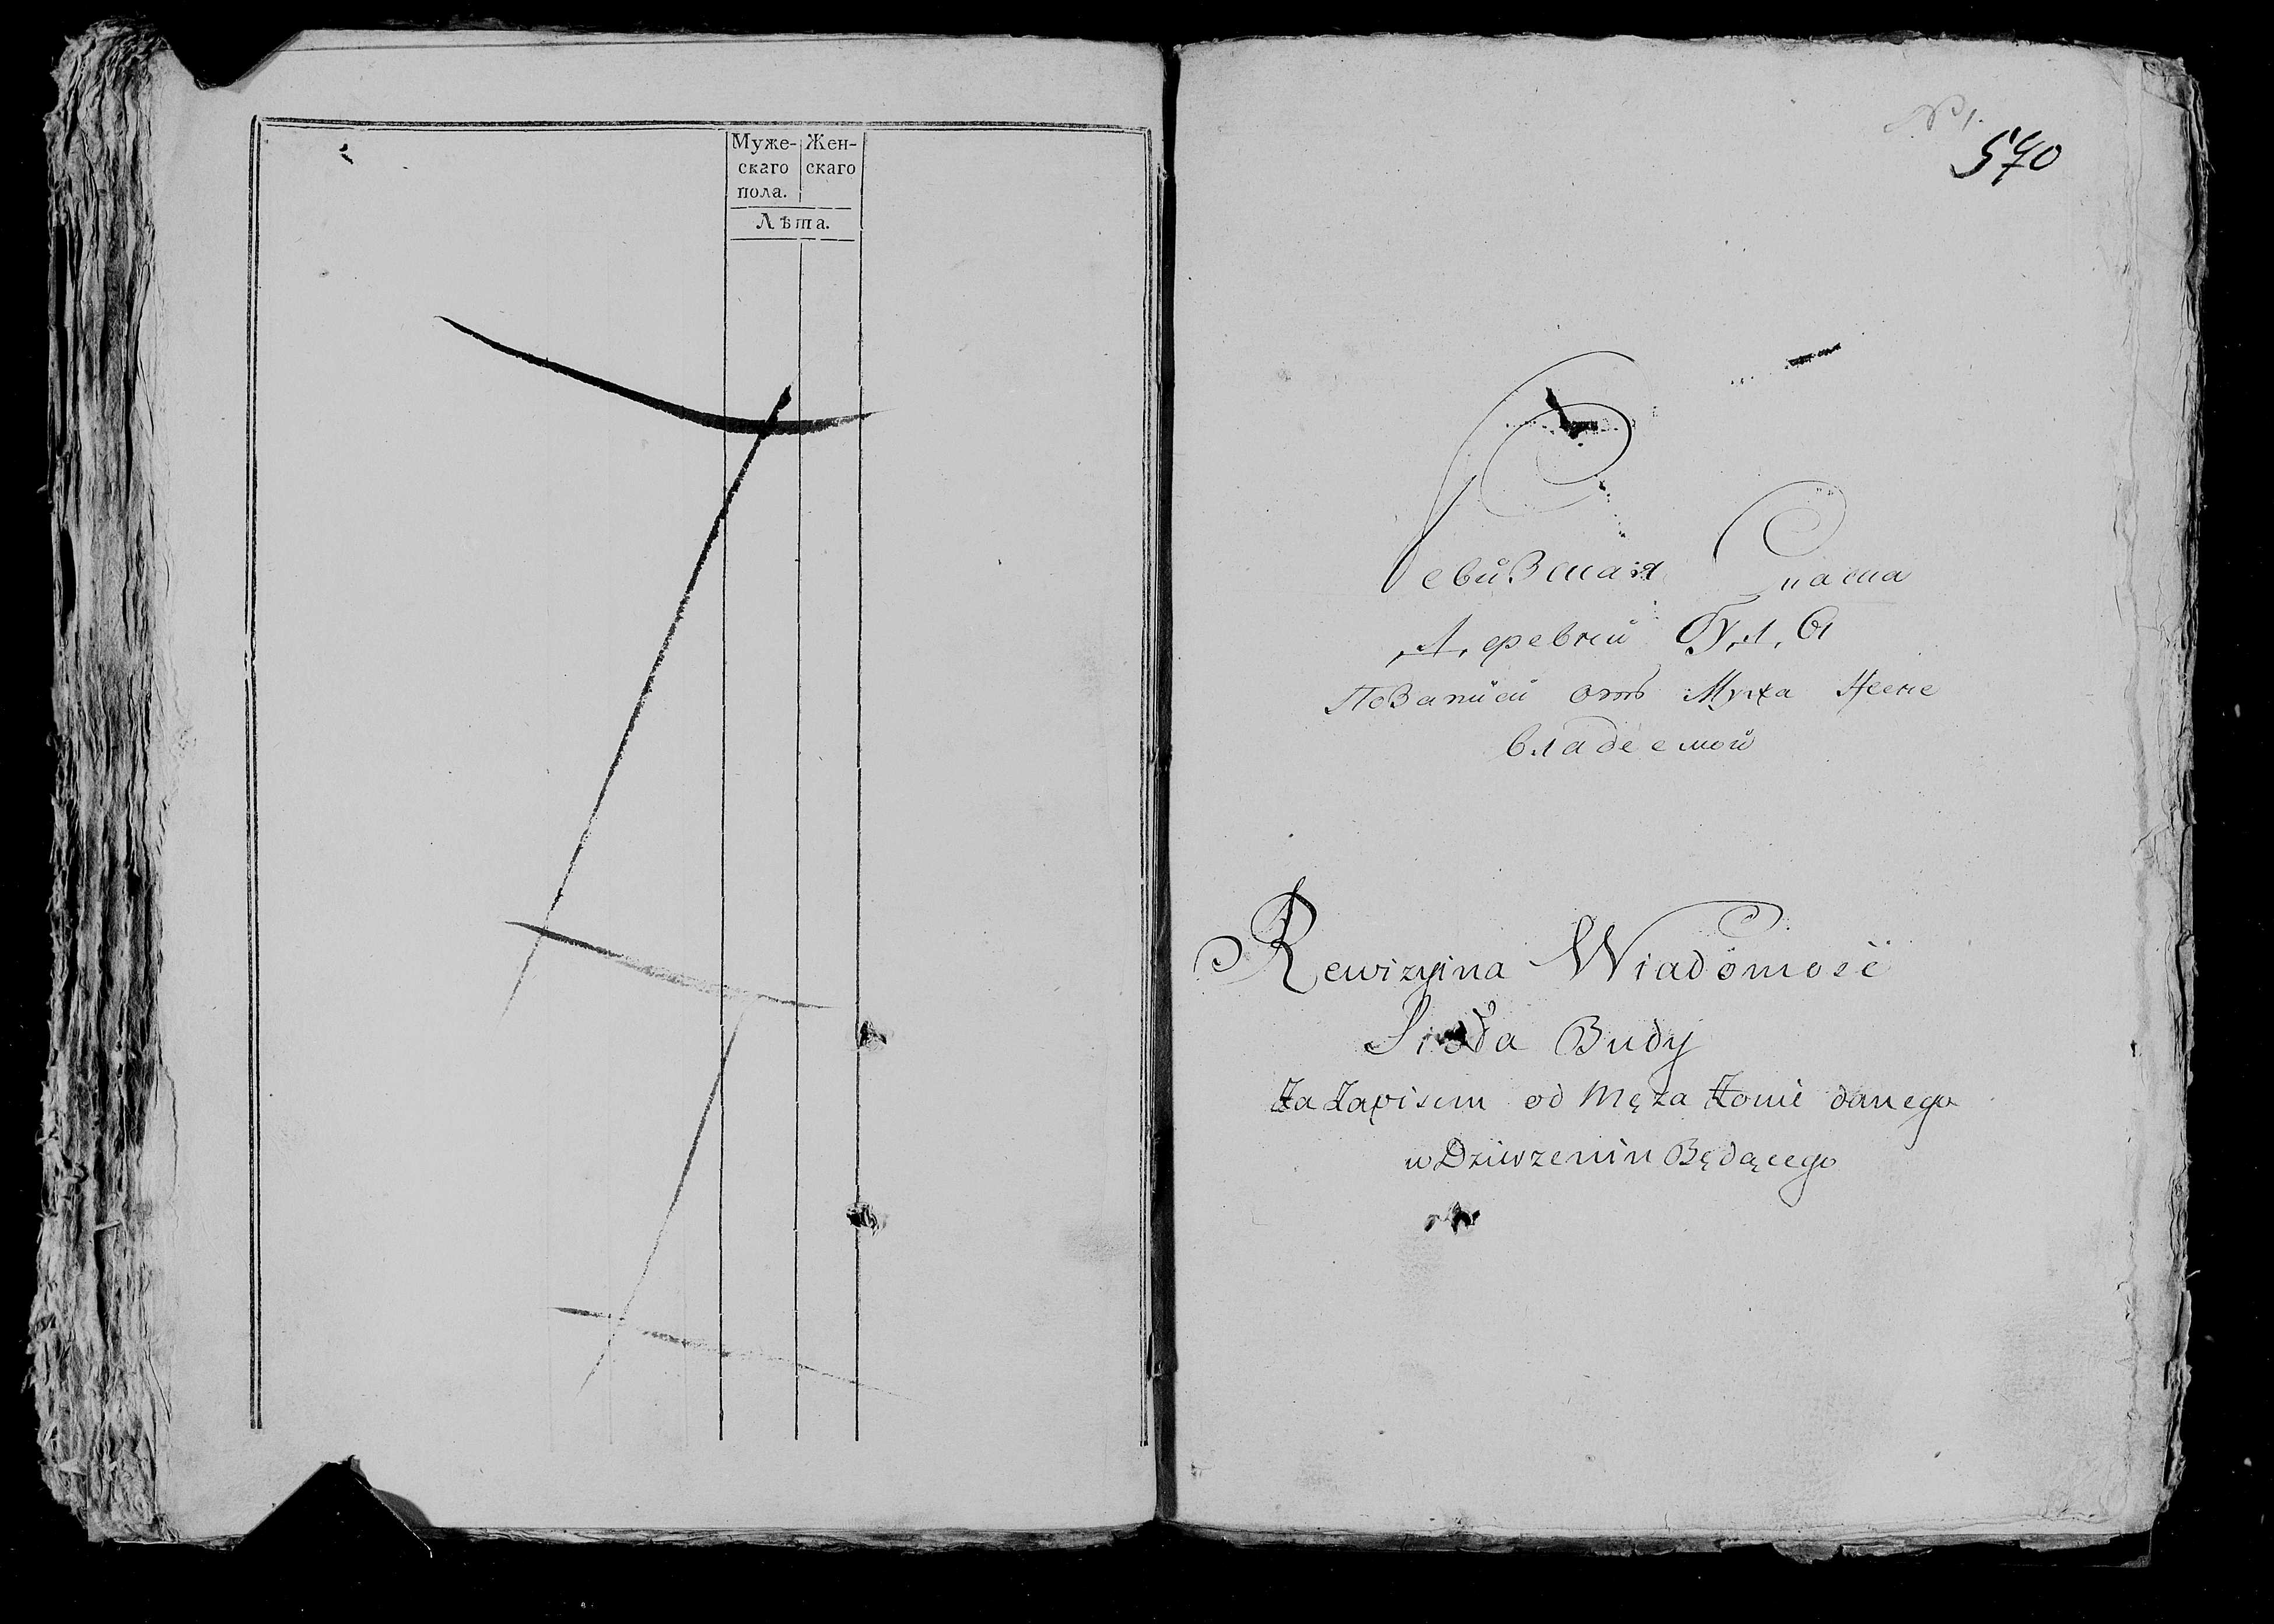 Муже-
скаго
пола.
Жен-
скаго
Лѣта.
№ 1.
570
Ревизская Сказка
Деревни Буды
По Записи отъ Мужа Жене
владеемой
Rewizyina Wiadomość
Sioła Budy
Za Zapisem od Męża Żonie danego
w Dzierzeniu Będącego